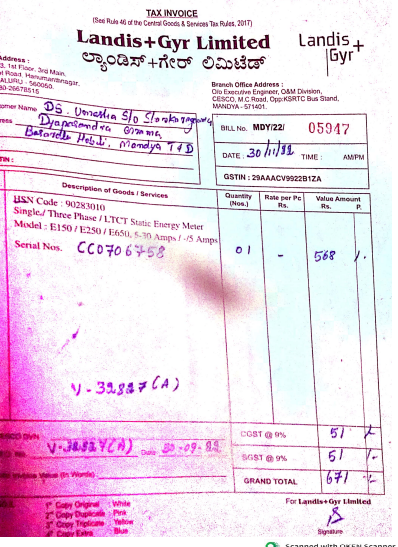 TAX INVOICE
(See Rule 46 of the Central Goods & Services Tax Rules, 2017)
Landis+Gyr Limited
ಲ್ಯಾಂಡಿಸ್+ಗೇರ್ ಲಿಮಿಟೆಡ್
Landis+
Gyr+
Address :
3, 1st Floor, 3rd Main,
Road, Hanumanthnagar,
ALURU - 560050.
80-26678515
Branch Office Address :
O/o Executive Engineer, O&M Division,
CESCO, M.C.Road, Opp:KSRTC Bus Stand,
MANDYA - 571401.
omer Name DS. Umesha S/o
ress
Mandya T&D
BILL No. MDY/22/ 05947
DATE : 30/11/22 TIME : AM/PM
GSTIN : 29AAACV9922B1ZA
TIN :
Description of Goods / Services
Quantity (Nos.)
Rate per Pc Rs.
Value Amount Rs. P.
HSN Code : 90283010
Single / Three Phase / LTCT Static Energy Meter
Model : E150 / E250 / E650, 5-30 Amps / -/5 Amps
Serial Nos. CC0706758 01 - 568 /-
V-32827(A)
DVN V-32827(A) Date 30-09-22
CGST @ 9% 51 /-
SGST @ 9% 51 /-
Value (in Words)
GRAND TOTAL 671 /-
For Landis+Gyr Limited
1st Copy Original : White
Copy Duplicate : Pink
Copy Triplicate : Yellow
Copy Extra : Blue
Signature
Scanned with OKEN Scanner